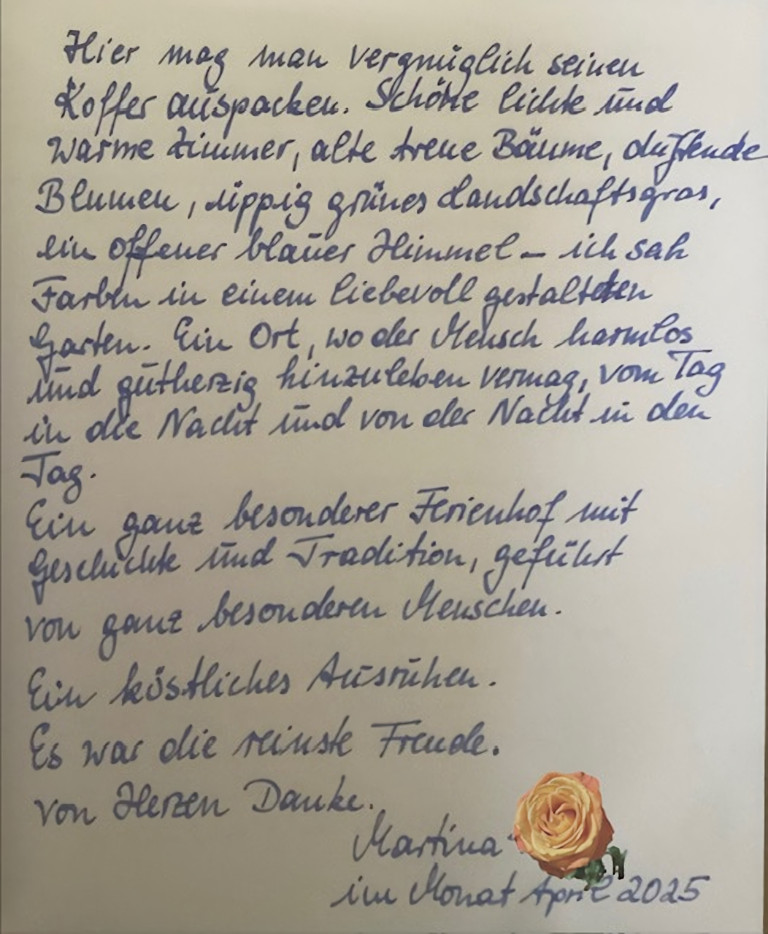 Hier mag man vergnüglich seinen
Koffer auspacken. Schöne lichte und
warme Zimmer, alte treue Bäume, duftende
Blumen, üppig grünes Landschaftsgras,
ein offener blauer Himmel – ich sah
Farben in einem liebevoll gestalteten
Garten. Ein Ort, wo der Mensch harmlos
und gutherzig hinzuleben vermag, vom Tag
in die Nacht und von der Nacht in den
Tag.
Ein ganz besonderer Ferienhof mit
Geschichte und Tradition, geführt
von ganz besonderen Menschen.
Ein köstliches Ausruhen.
Es war die reinste Freude.
Von Herzen Danke.
Martina
im Monat April 2025